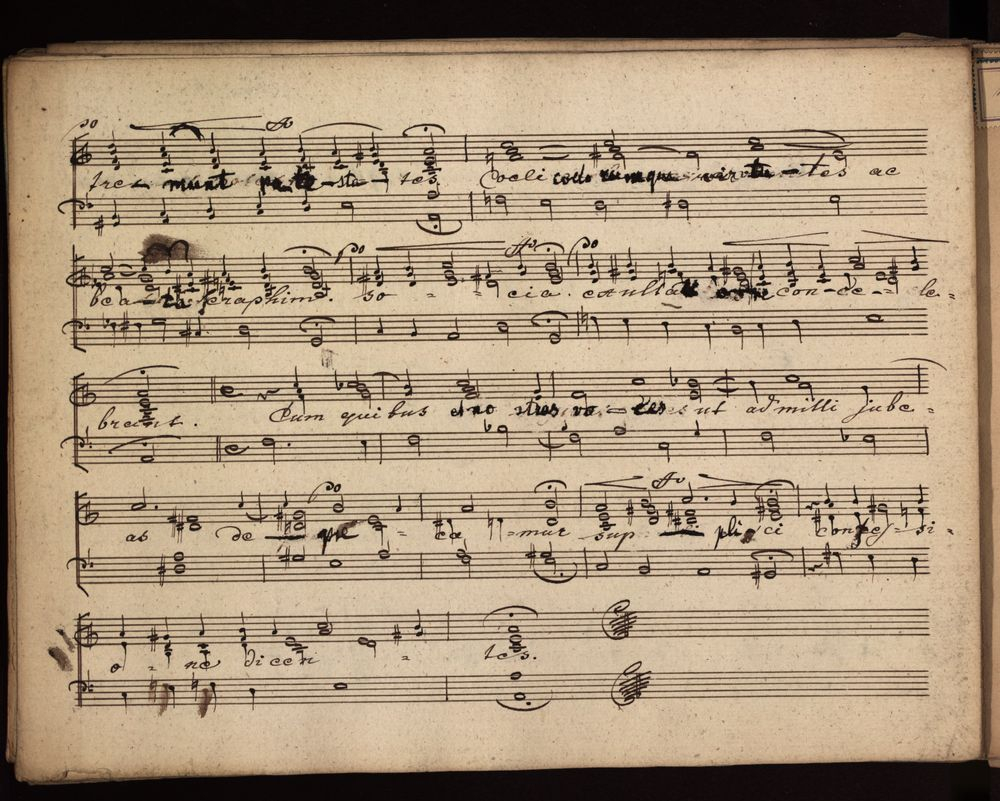 tre - munt po - te - sta - tes. Coeli coelo rumque virtu - tes ac
bea - ta Seraphim. so - cia exulta con - ce - le =
brant. Cum quibus et no stras vo - ces ut admitti jube =
as de - pre = ca = mur sup - pli ci confes = si -
o = ne dicen = tes.